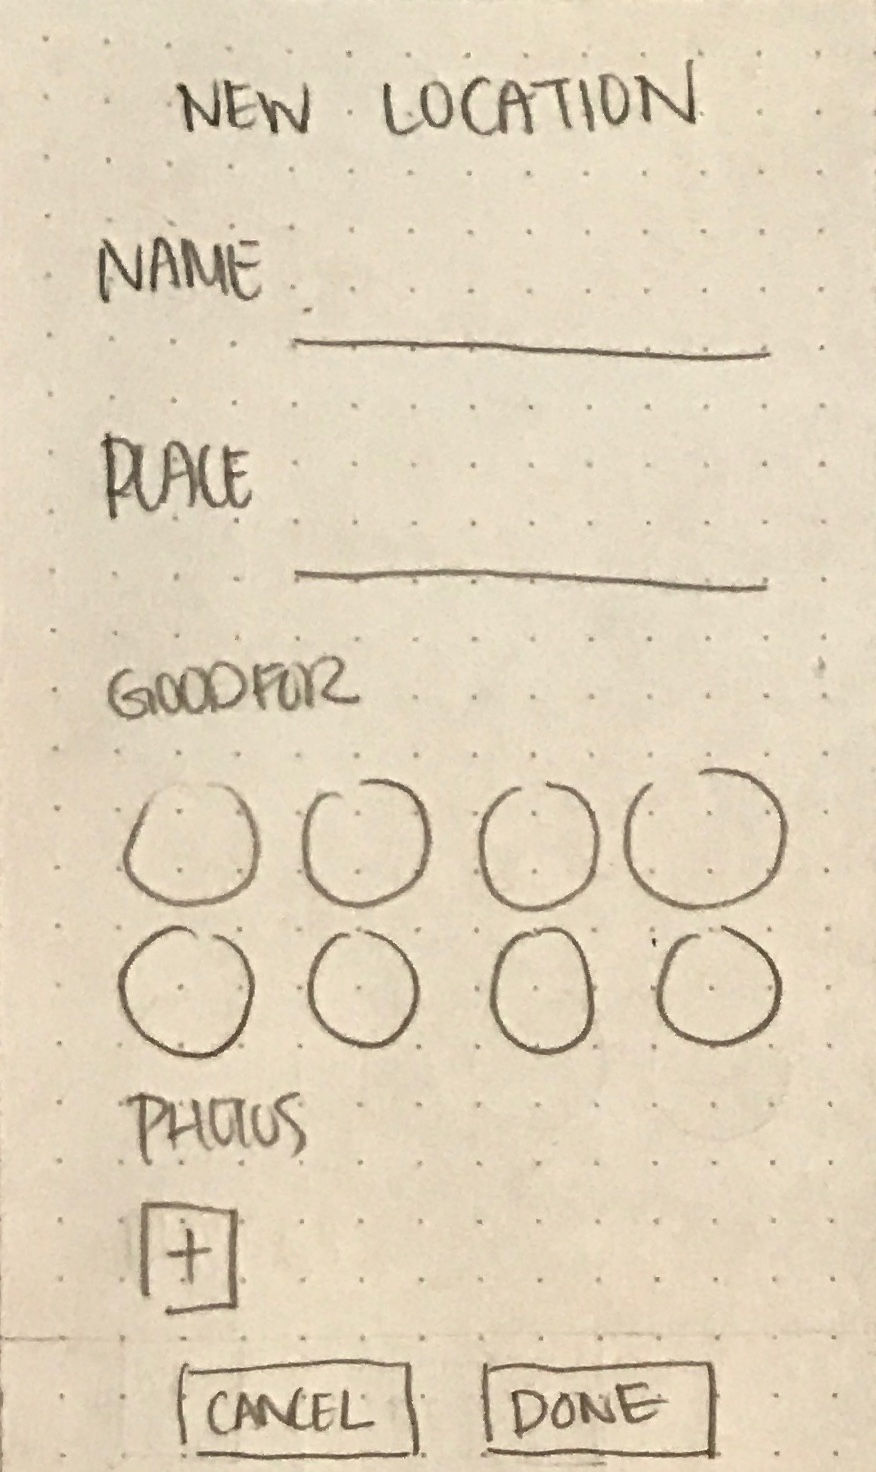 NEW LOCATION
NAME
PLACE
GOOD FOR
PHOTOS
+
CANCEL DONE